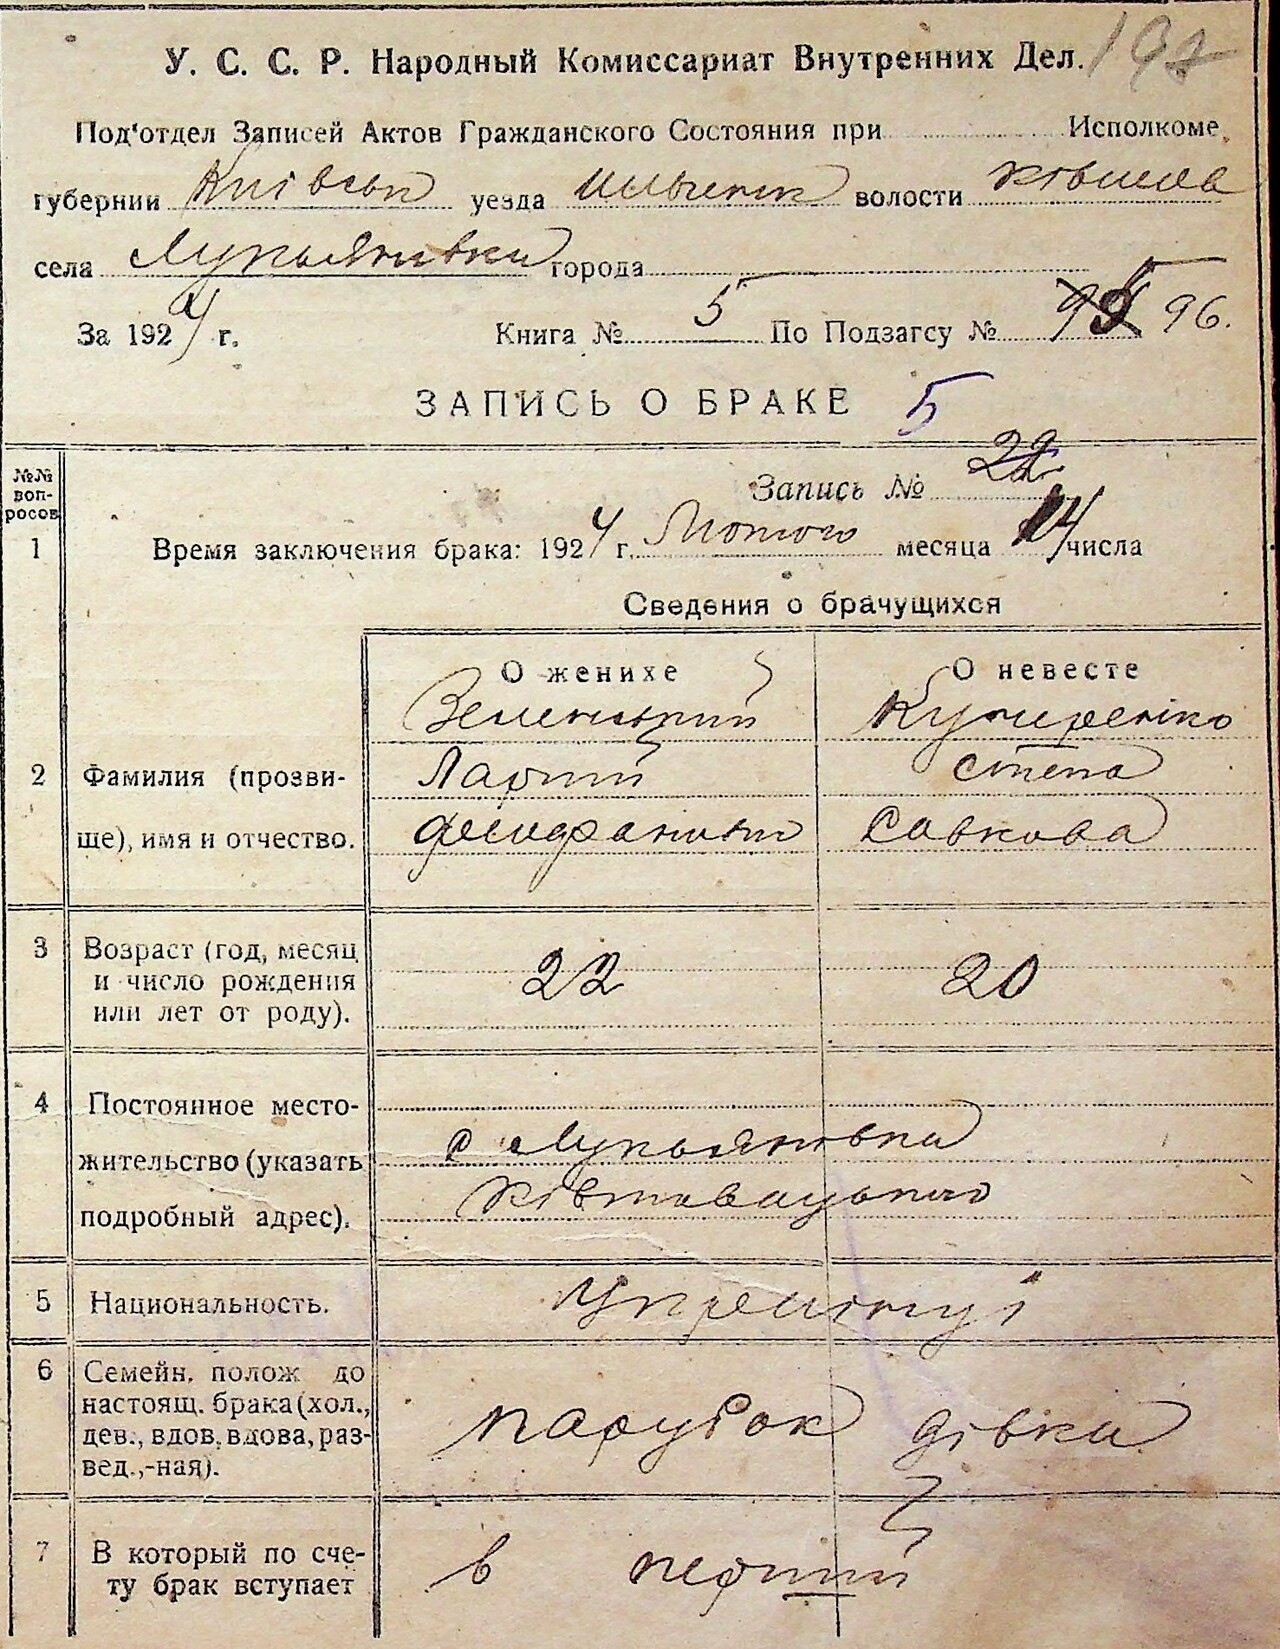 У. С. С. Р. Народный Комиссариат Внутренних Дел.
Под'отдел Записей Актов Гражданского Состояния при Исполкоме
губернии Київськ уезда волости
села Лукьянивки города
За 1924 г. Книга № 5 По Подзагсу № 96.
ЗАПИСЬ О БРАКЕ 5
№№ вопросов
Запись № 22
1 Время заключения брака: 1924 г. Лютого месяца 14 числа
Сведения о брачущихся
О женихе О невесте
Зеленський Кучиренко
2 Фамилия (прозви- Ларий Степа
ще), имя и отчество. Савкова
3 Возраст (год, месяц
и число рождения 22 20
или лет от роду).
4 Постоянное место-
жительство (указать с Лукьянивка
подробный адрес).
5 Национальность. Украинці
6 Семейн. полож до
настоящ. брака (хол.,
дев., вдов, вдова, раз- парубок дівка
вед.,-ная).
7 В который по сче- в перший
ту брак вступает